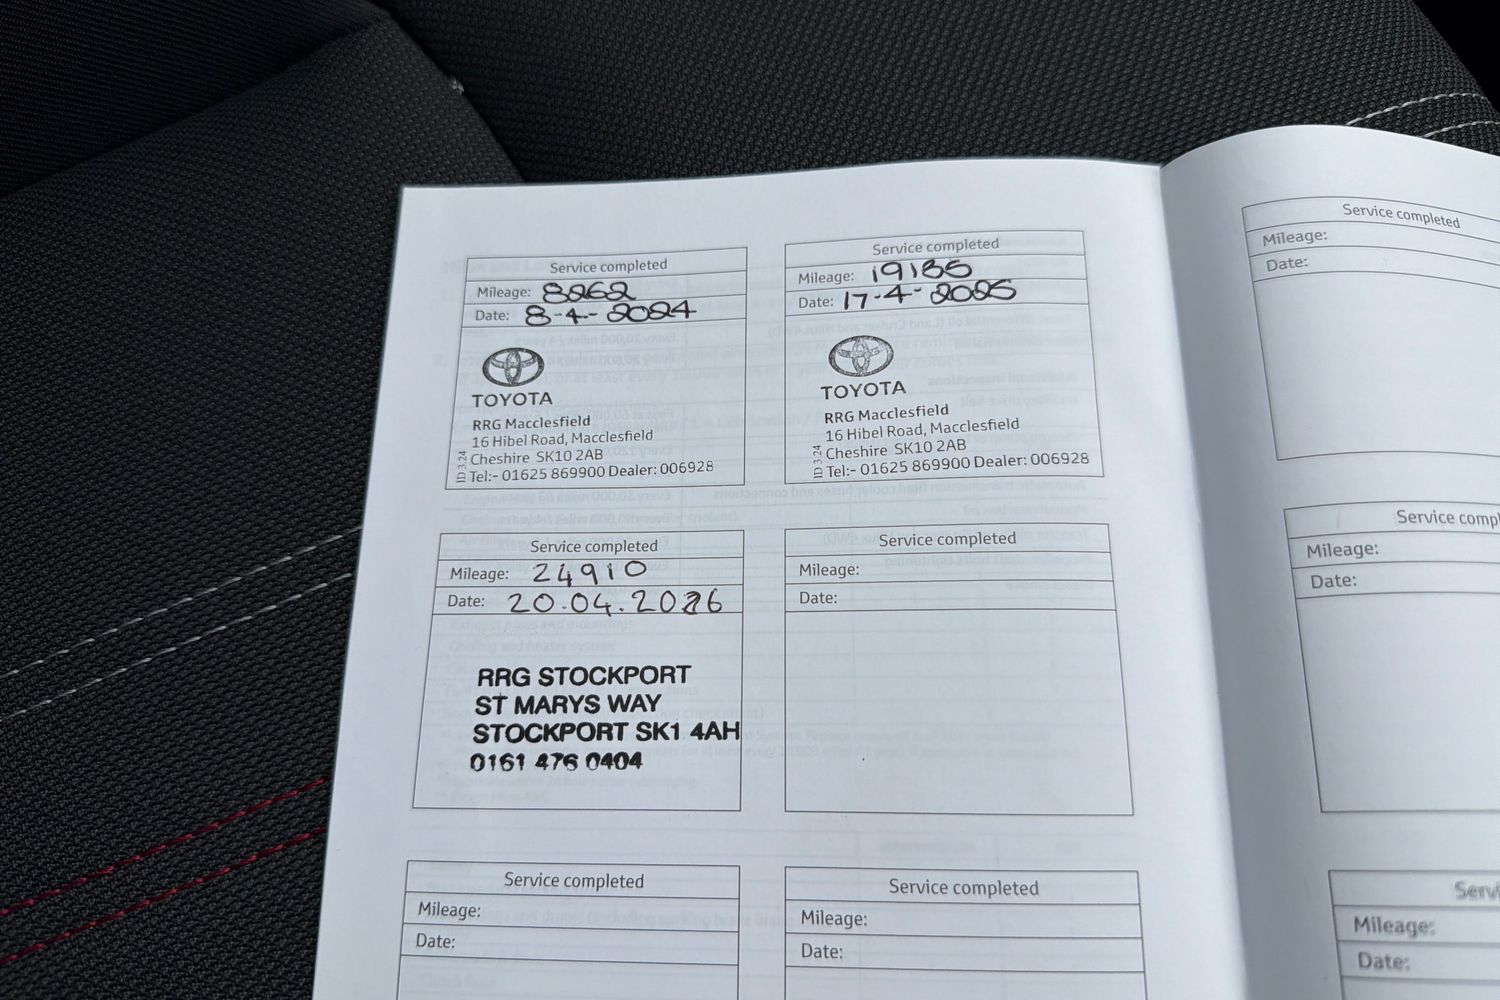 Service completed
Mileage: 8262
Date: 8-4-2024
TOYOTA
RRG Macclesfield
16 Hibel Road, Macclesfield
Cheshire SK10 2AB
Tel:- 01625 869900 Dealer: 006928
ID 3.24
Service completed
Mileage: 19135
Date: 17-4-2025
TOYOTA
RRG Macclesfield
16 Hibel Road, Macclesfield
Cheshire SK10 2AB
Tel:- 01625 869900 Dealer: 006928
ID 3.24
Service completed
Mileage: 24910
Date: 20.04.2026
RRG STOCKPORT
ST MARYS WAY
STOCKPORT SK1 4AH
0161 476 0404
Service completed
Mileage:
Date:
Service completed
Mileage:
Date:
Service completed
Mileage:
Date:
Service completed
Mileage:
Date:
Service compl
Mileage:
Date:
Servi
Mileage:
Date: